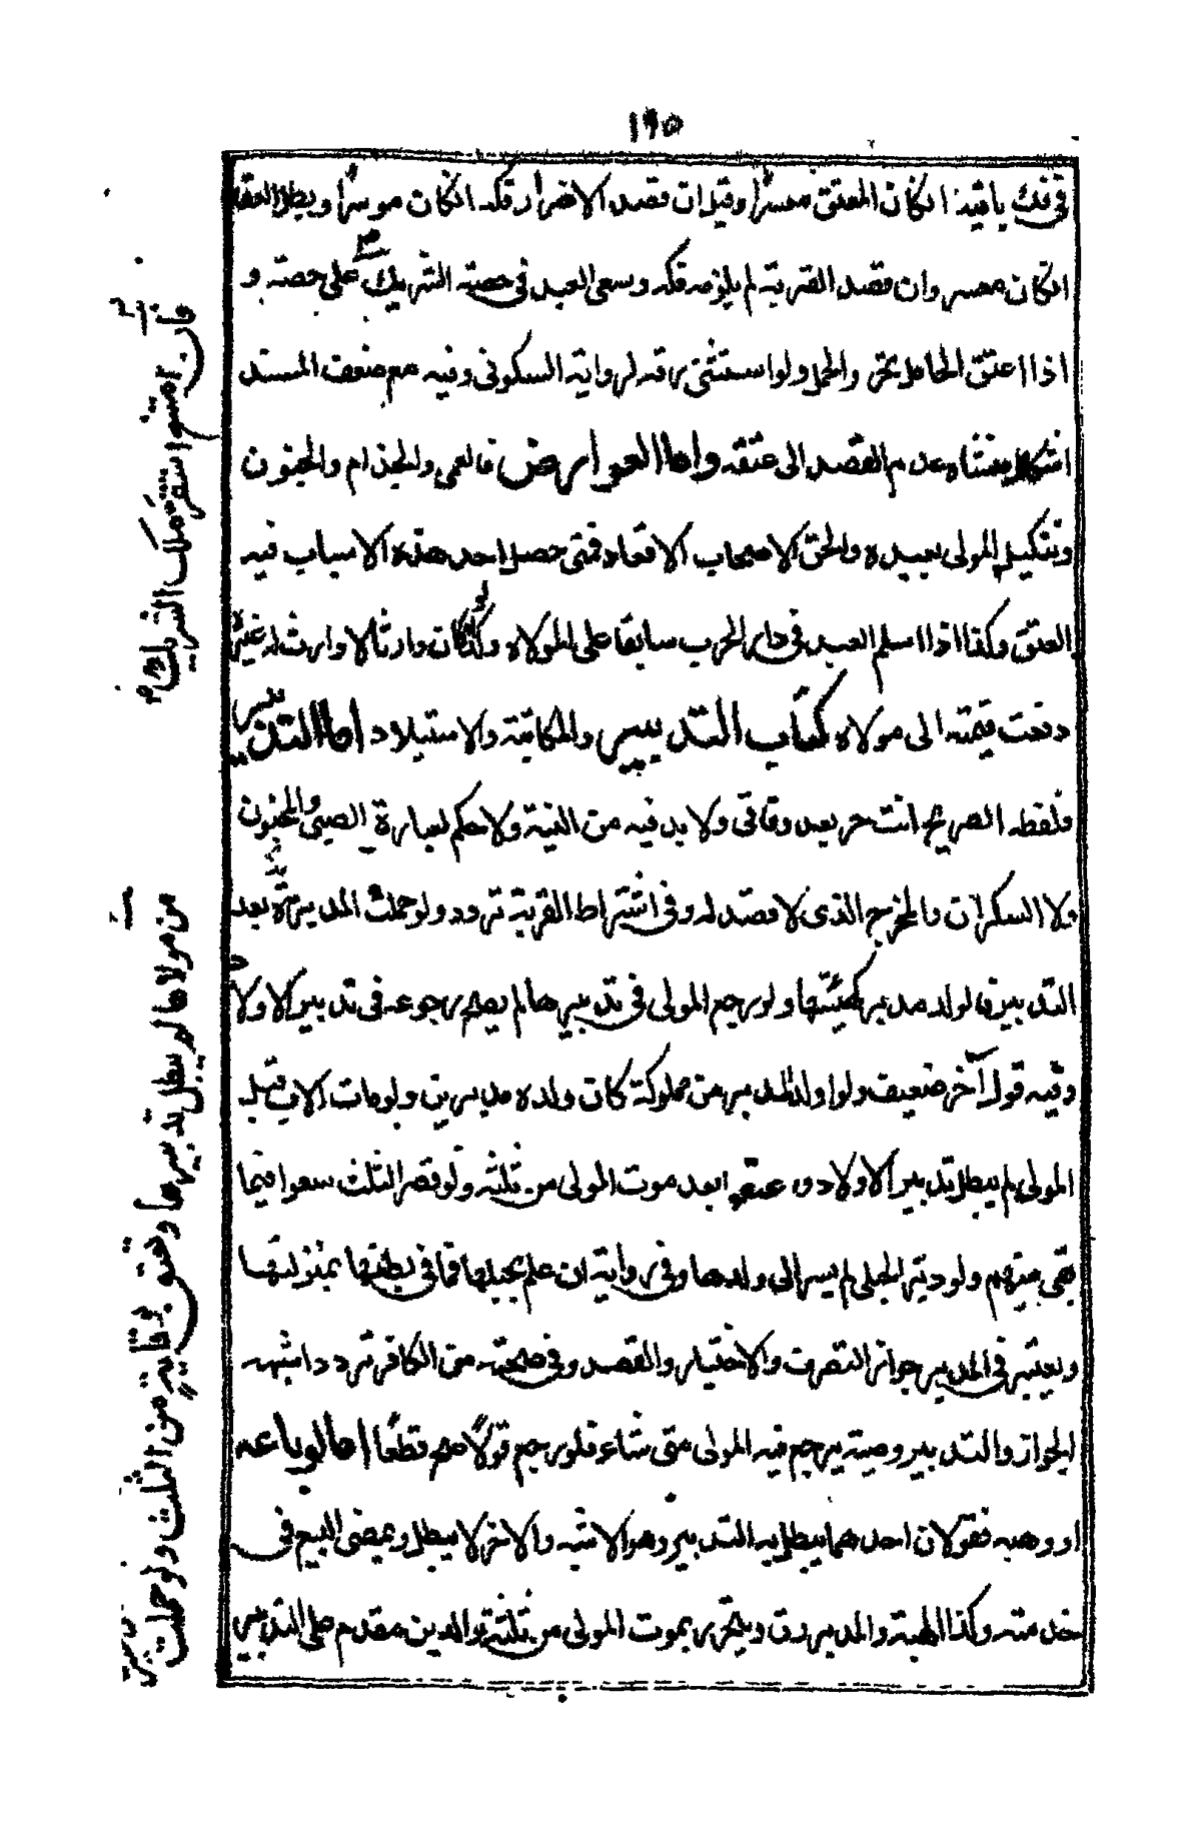 ١٩٥
في فك باقيه ان كان المعتق معسرا وقيل ان قصد الاضرار فكه ان كان موسرا وبطل العتق
ان كان معسر وان قصد القربة لم يلزمه فكه وسعى العبد في حصته الشريك على حصته و
اذا اعتق الحامل تحرر والحمل ولو استثنى رقه لرواية السكوني وفيه مع ضعف المسند
اشكال منشاه عدم القصد الى عتقه واما العوارض فالعمى والجذام والجنون
وتنكيل المولى بعبده والحق الاصحاب الاقعاد فمتى حصل احد هذه الاسباب فيه
العتق وكذا اذا اسلم العبد في دار الحرب سابقا على المولاه وكذا لو كان وارثا لا وارث له غيره
دفعت قيمته الى مولاه كتاب التدبير والمكاتبة والاستيلاد اما التدبير
فلفظه الصريح انت حر بعد وفاتي ولا بد فيه من النية ولا حكم لعبارة الصبي والمجنون
ولا السكران والمحرج الذي لا قصد له وفي اشتراط القربة تردد ولو حملت المدبرة بعد
التدبير فالولد مدبر كهيئتها ولو رجع المولى في تدبيرها لم يصح رجوعه في تدبير الاولاد
وفيه قول آخر ضعيف ولو اولد المدبر من مملوكة كان ولده مدبرين ولو مات الاب قبل
المولى لم يبطل تدبير الاولاد وعتقوا بعد موت المولى من ثلثه ولو قصر الثلث سعوا فيما
بقي منهم ولو دبر الحبلى لم يسر الى ولدها وفي رواية ان علم بحبلها فما في بطنها بمنزلتها
ويعتبر في المدبر جواز التصرف والاختيار والقصد وفي صحته من الكافر تردد اشبهه
الجواز والتدبير وصية يرجع فيه المولى متى شاء فلو رجع قولا صح قطعا اما لو باعه
او وهبه فقولان احدهما يبطل به التدبير وهو الاشبه والاخر لا يبطل ويمضي البيع في
خدمته وكذا الهبة والمدبر رق ويتحرر بموت المولى من ثلثه والدين مقدم على التدبير
فان امتنع استقر ملك الشريك
من مولاها لم يبطل تدبيرها وتعتق بوفاته من الثلث ولو حملت